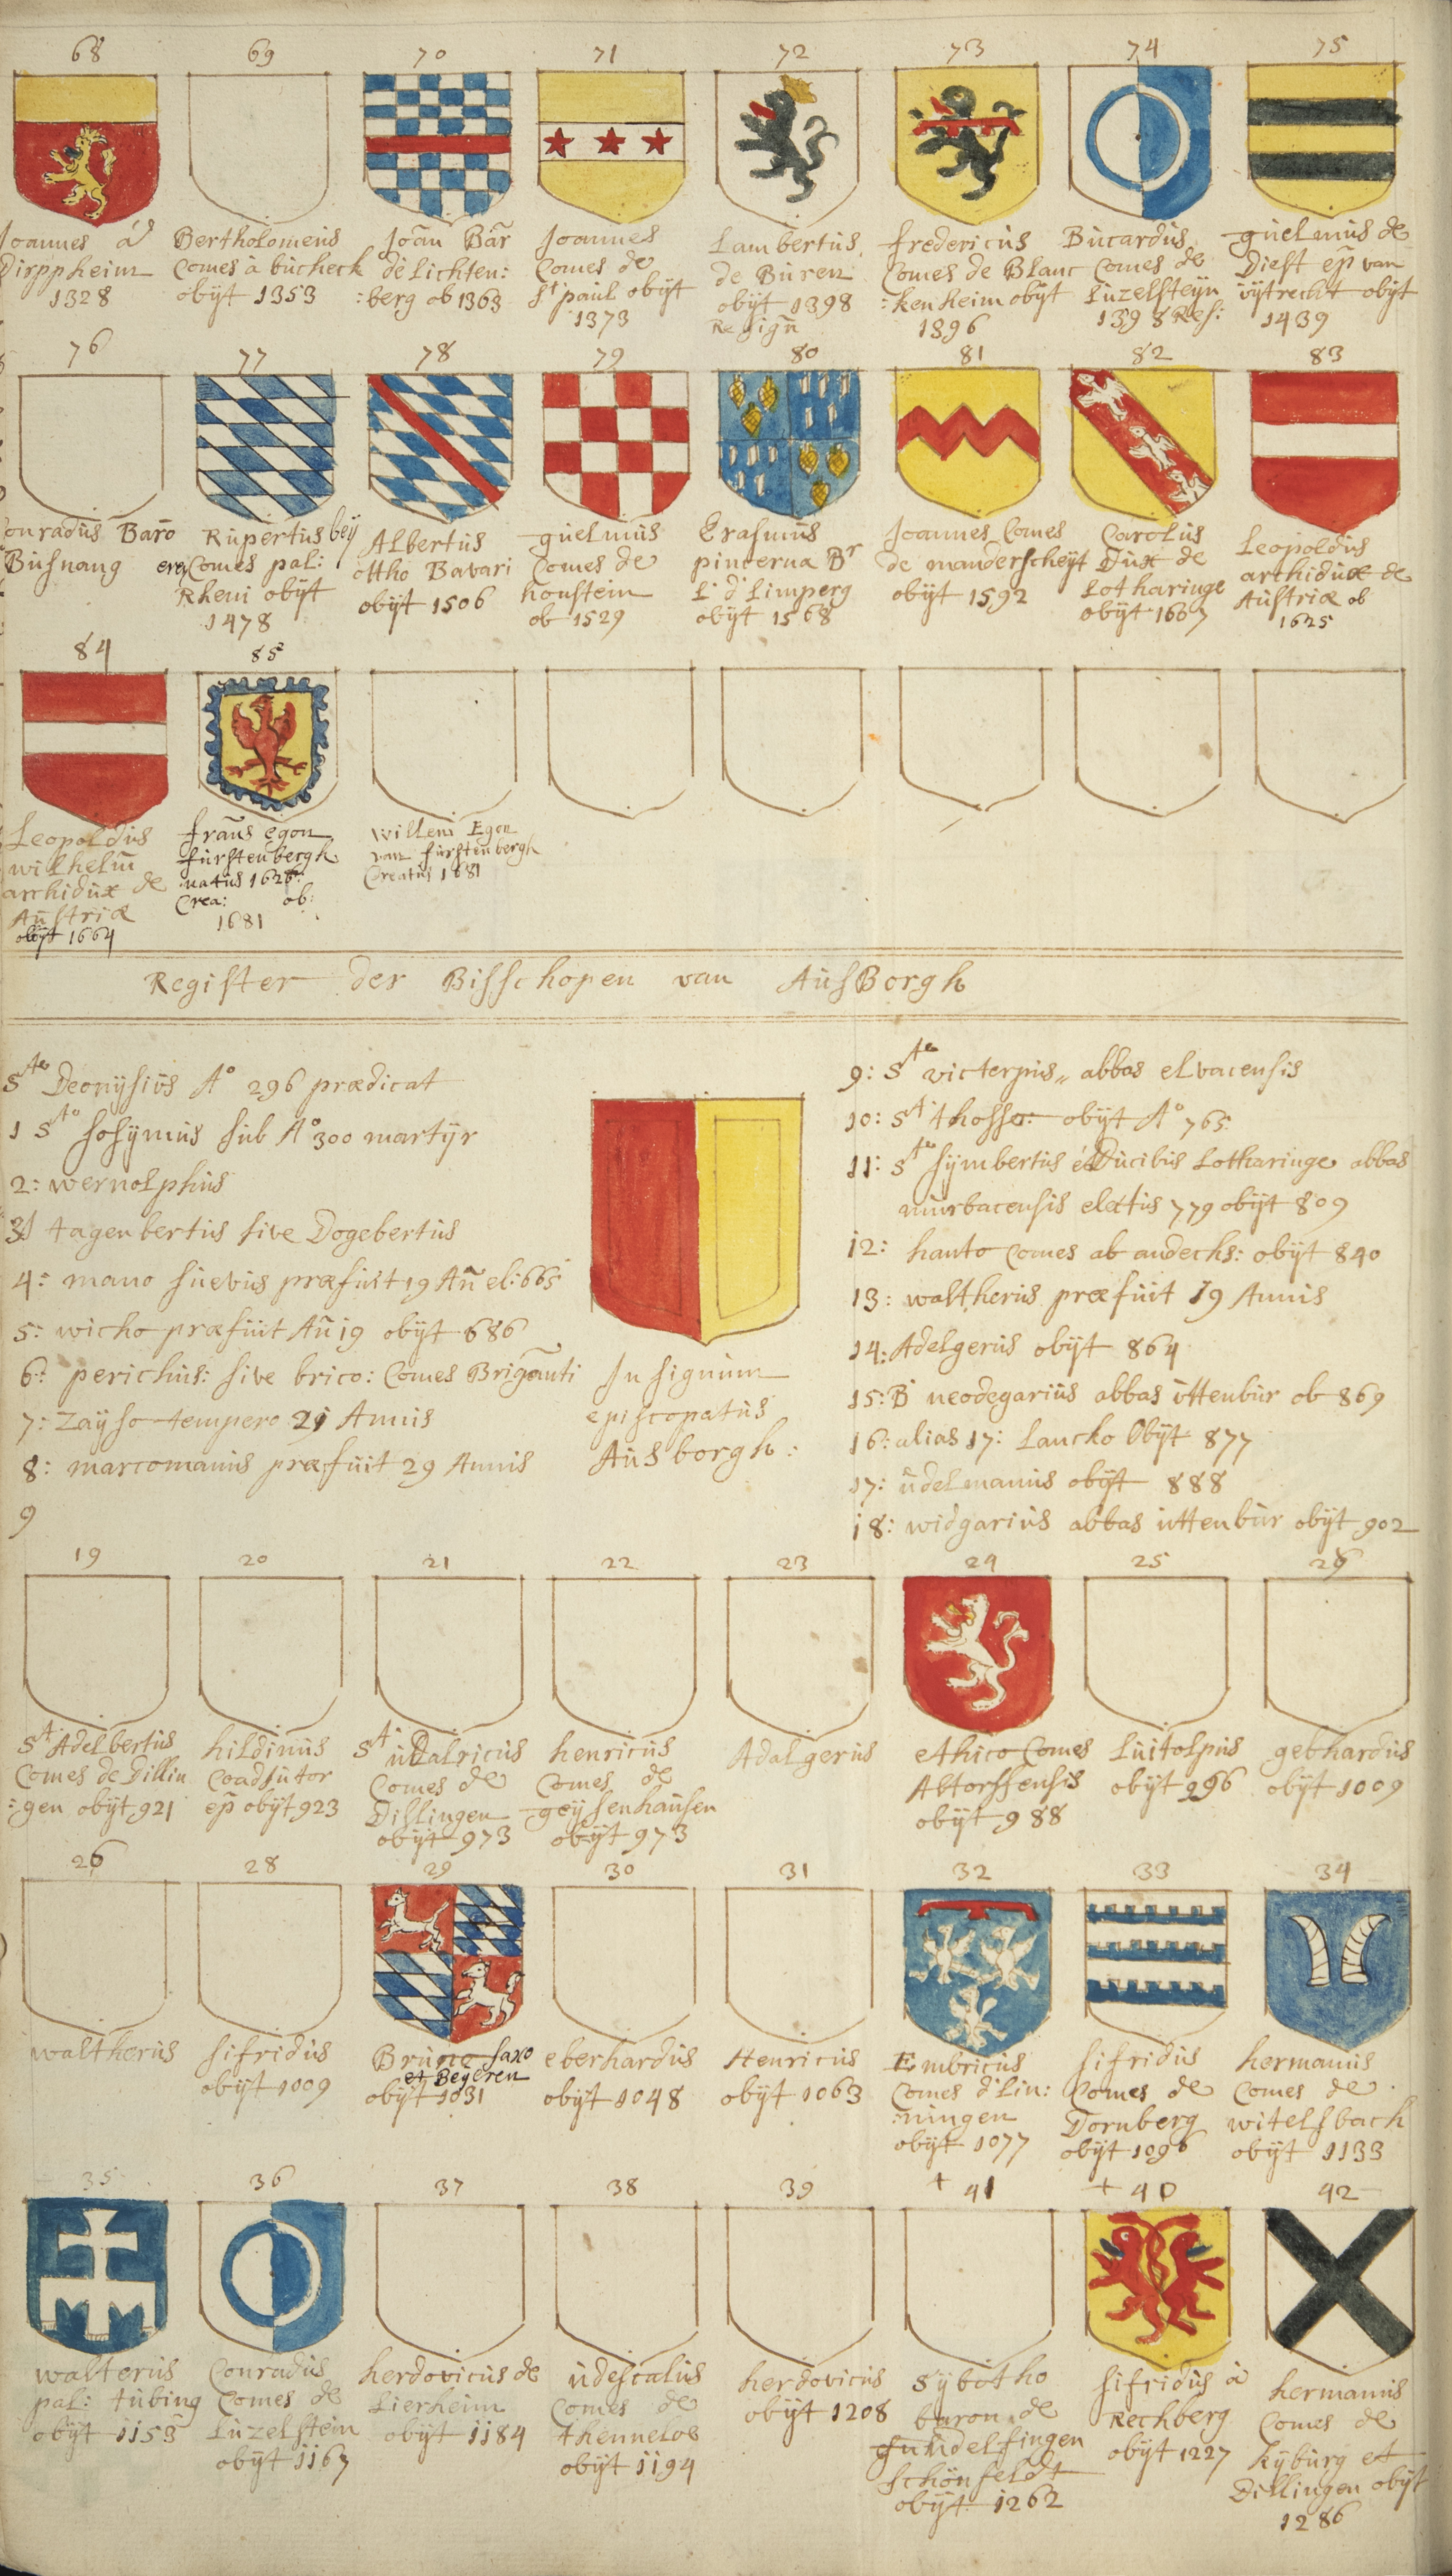 68
Joannes ad
Dirppheim
1328
69
Bertholomeus
Comes à bucheck
obijt 1353
70
Joan Bar
de Lichten:
:berg ob 1363
71
Joannes
Comes de
St paul obijt
1373
72
Lambertus
de Buren
obijt 1398
Resign
73
fredericus
Comes de Blanc
:kenheim obijt
1396
74
Bucardus
Comes de
Luzelsteijn
1398 Res:
75
guelmus de
Diest ep van
uijtrecht obijt
1439
76
Conradus Baro
Busnang
77
Rupertus beij
eren Comes pal:
Rheni obijt
1478
78
Albertus
ottho Bavari
obijt 1506
79
guelmus
Comes de
honstein
ob 1529
80
Erasmus
pincerna Br
L. d' Limperg
obijt 1568
81
Joannes Comes
de manderscheijt
obijt 1592
82
Carolus
Dux de
Lotharinge
obijt 1607
83
Leopoldus
archidux de
Austriæ ob
1625
84
Leopoldus
wilhelm
archidux de
Austriæ
obijt 1664
85
frans egon
furstenbergh
natus 1626:
Crea: ob:
1681
Willem Egon
van furstenbergh
Creatus 1681
Register der Bisschopen van AusBorgh
Ste Deonijsius Ao 296 prædicat
1 Sto Sosijmus sub Ao 300 martijr
2: wernolphus
3 tagenbertus sive Dogebertus
4: mano suevus præfuit 19 An el: 665
5: wicho præfuit An 19 obijt 686
6: perichus: sive brico: Comes Briganti
7: Zaijso tempero 21 Annis
8: marcomanus præfuit 29 Annis
9
Insignum
episcopatus
Ausborgh:
9: Ste victerpus abbas elvacensis
10: St thosso: obijt Ao 765
11: Ste sijmbertus é Ducibus Lotharinge abbas
murbacensis electus 779 obijt 809
12: hanto Comes ab andechs: obijt 840
13: waltherus præfuit 19 Annis
14: Adelgerus obijt 864
15: B neodegarius abbas uttenbur ob 869
16: alias 17: Lancko Obijt 877
17: udelmanus obijt 888
18: widgarius abbas uttenbur obijt 902
19
St Adelbertus
Comes de Dillin
:gen obijt 921
20
hildinus
Coadjutor
ep obijt 923
21
St uDalricus
Comes de
Dillingen
obijt 973
22
henricus
Comes de
geijsenhausen
obijt 973
23
Adalgerus
24
ethico Comes
Altorffensis
obijt 988
25
Luitolpus
obijt 996
26
gebhardus
obijt 1009
26
waltherus
28
sifridus
obijt 1009
29
Bruno saxo
et Beyeren
obijt 1031
30
eberhardus
obijt 1048
31
Henricus
obijt 1063
32
Embricus
Comes d'Lin:
:ningen
obijt 1077
33
sifridus
Comes de
Dornberg
obijt 1096
34
hermanus
Comes de
witelsbach
obijt 1133
35
walterus
pal: tubing
obijt 1153
36
Conradus
Comes de
Luzelstein
obijt 1167
37
herdovicus de
Lierheim
obijt 1184
38
udescalus
Comes de
thennelos
obijt 1194
39
herdovicus
obijt 1208
+ 41
Sijbotho
baron de
gundelfingen
schönfeldt
obijt 1262
+ 40
sifridus à
Rechberg
obijt 1227
42
hermanus
Comes de
Kijburg et
Dillingen obijt
1286